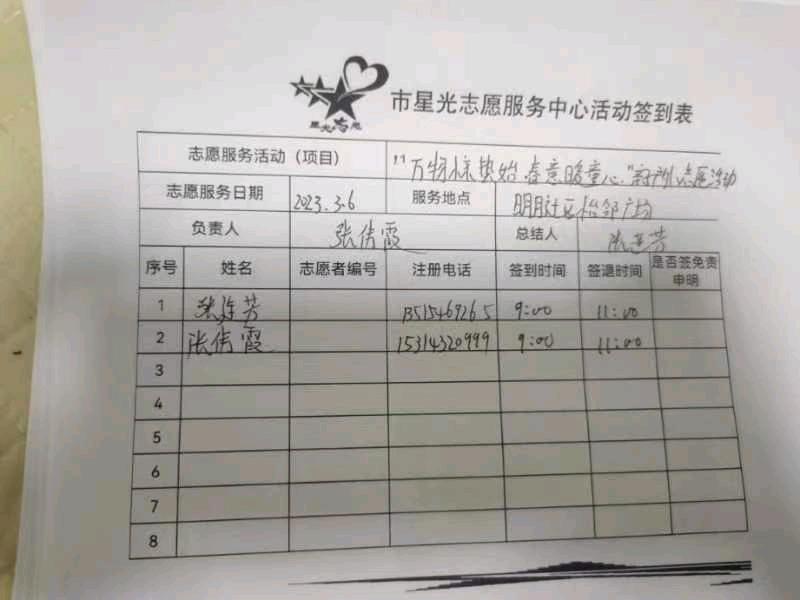 星光志愿
市星光志愿服务中心活动签到表
志愿服务活动（项目） "万物惊蛰始 春意暖童心" 志愿活动
志愿服务日期 2023.3.6 服务地点 明月社区怡邻广场
负责人 张倩霞 总结人 张连芳
序号 姓名 志愿者编号 注册电话 签到时间 签退时间 是否签免责申明
1 张连芳 9:00 11:00
2 张倩霞 15314320999 9:00 11:00
3
4
5
6
7
8